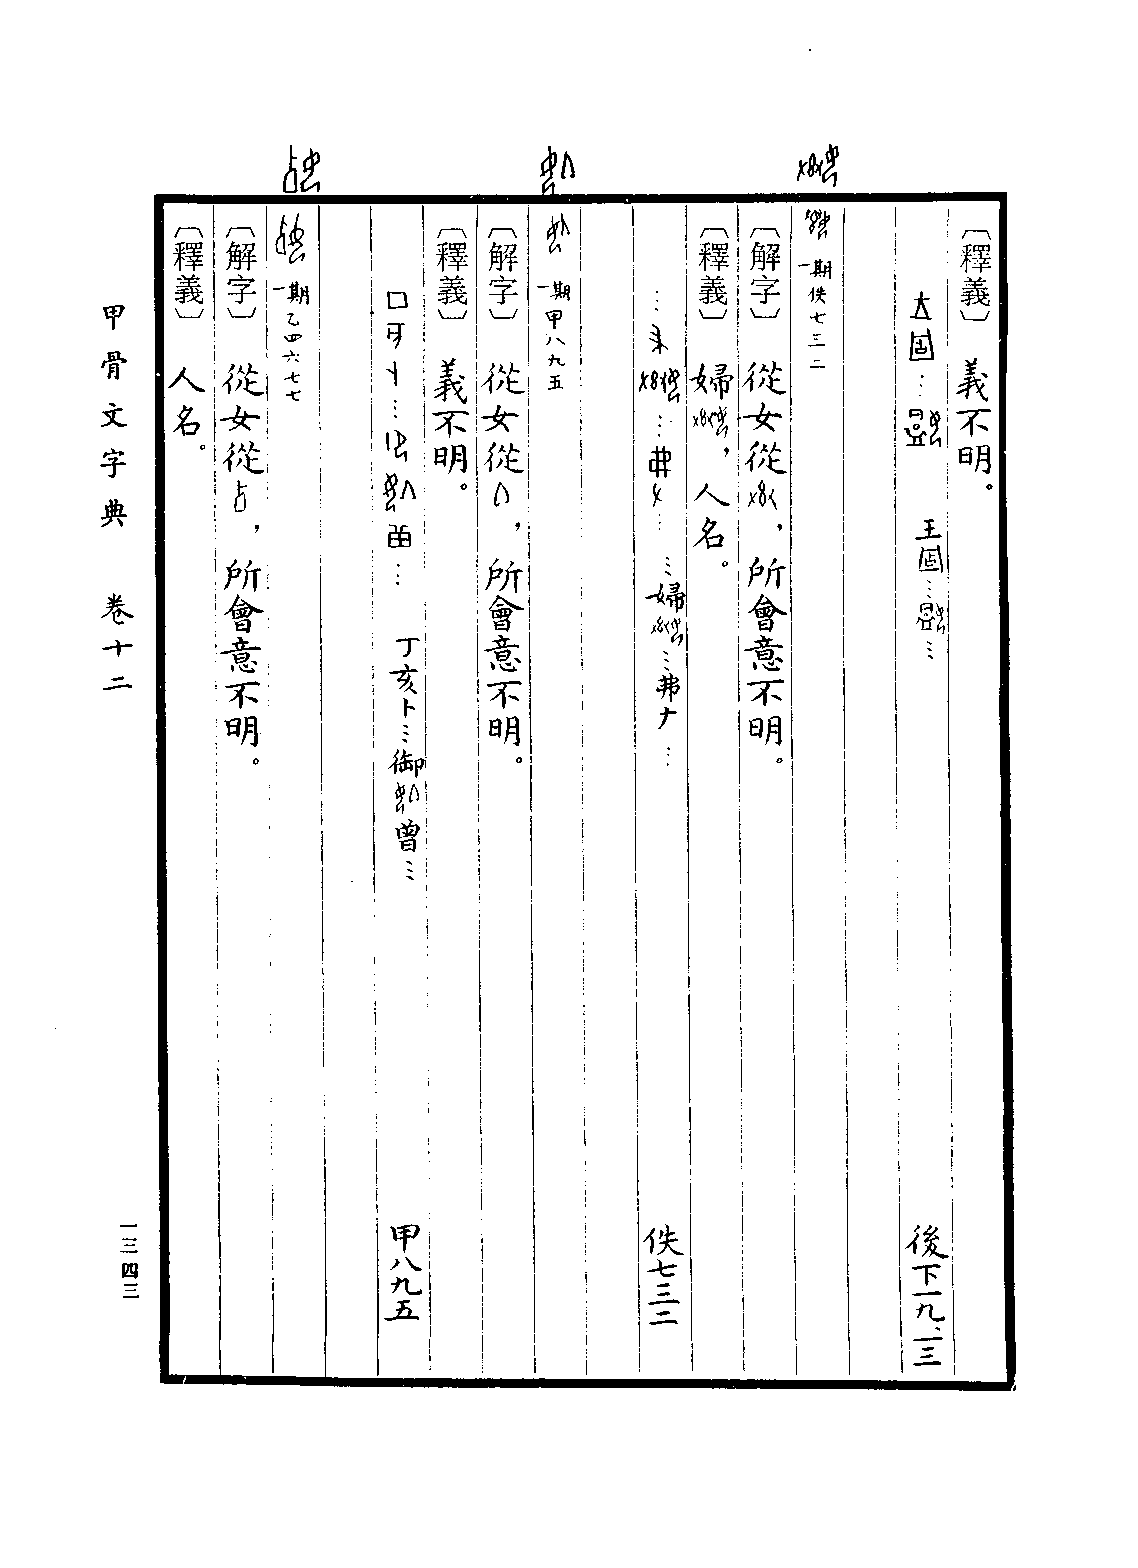 〔釋義〕 義不明。
王固…… 王固……
後下一九.一三
一期佚七三二
〔解字〕 從女從，所會意不明。
〔釋義〕 婦，人名。
…………婦…弗ナ…
佚七三二
一期甲八九五
〔解字〕 從女從，所會意不明。
〔釋義〕 義不明。
…… 丁亥卜…御曾…
甲八九五
一期乙四六七七
〔解字〕 從女從，所會意不明。
〔釋義〕 人名。
甲骨文字典 卷十二
一三四三